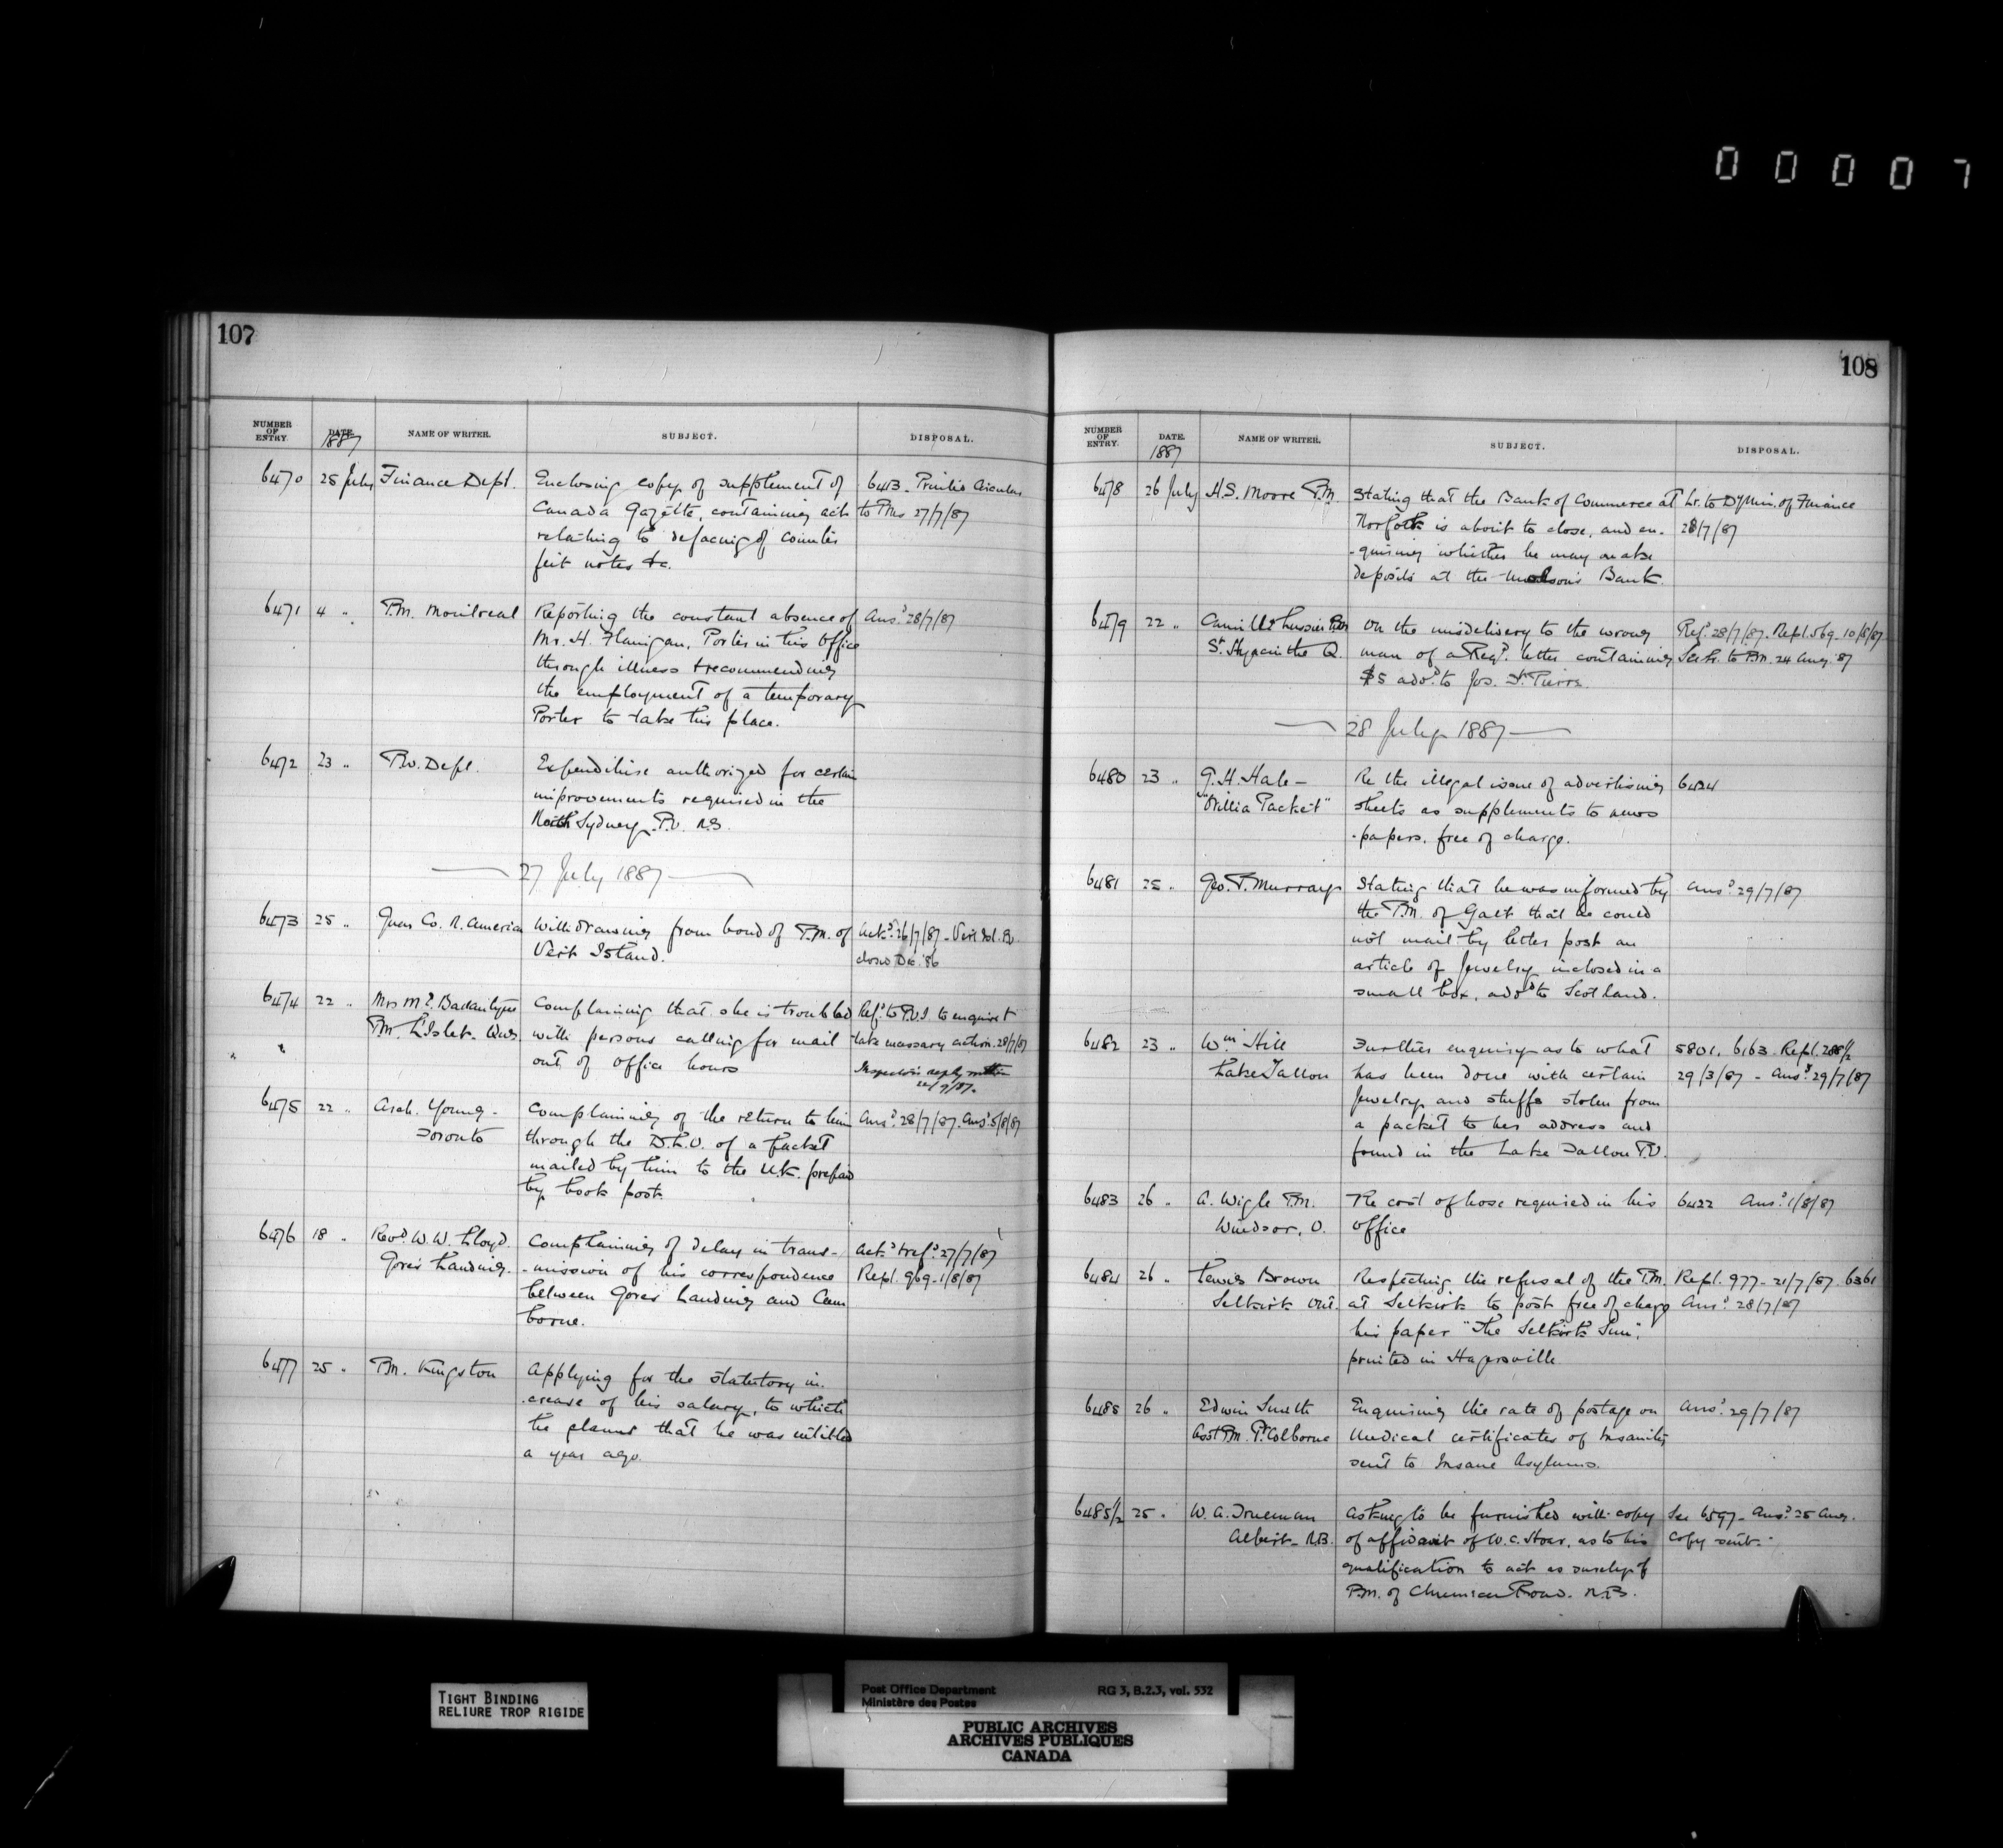 00007
107
NUMBER OF ENTRY. DATE. NAME OF WRITER. SUBJECT. DISPOSAL.
1887
6470 25 July Finance Dept. Enclosing copy of supplement of 6413. Printed Circular
Canada Gazette, containing act to PMs 27/7/87
relating to defacing of counter
feit notes &c.
6471 4 " P.M. Montreal Reporting the constant absence of Ansd 28/7/87
Mr. H. Flanigan, Porter in his Office
through illness & recommending
the employment of a temporary
Porter to take his place.
6472 23 " P.W. Dept. Expenditure authorized for certain
improvements required in the
North Sydney P.O. N.S.
27 July 1887
6473 25 " Guar Co. N. America Withdrawing from bond of P.M. of Ackd 26/7/87 - Vert Isl. P.O.
Vert Island. closed Dec. '86
6474 22 " Mrs M. E. Ballantyne Complaining that she is troubled Refd to P.O.I. to enquire &
P.M. L'Islet. Que. with persons calling for mail take necessary action. 28/7/87
" " out of office hours Inspector's reply within
22/9/87.
6475 22 " Arch. Young - Complaining of the return to him Ansd 28/7/87. Ansd 5/8/87
Toronto through the D.L.O. of a packet
mailed by him to the U.K. prepaid
by book post.
6476 18 " Revd W. W. Lloyd. Complaining of delay in trans- Ackd & refd 27/7/87
Gores Landing. -mission of his correspondence Repl. 969-1/8/87
between Gores Landing and Cam
borne.
6477 25 " P.M. Kingston Applying for the statutory in.
.crease of his salary, to which
he claims that he was entitled
a year ago.
108
NUMBER OF ENTRY. DATE. NAME OF WRITER. SUBJECT. DISPOSAL.
1887
6478 26 July H.S. Moore P.M. Stating that the Bank of Commerce at Lr. to Dy Min. of Finance
Norfolk is about to close, and en- 28/7/87
-quiring whether he may make
deposits at the Molson's Bank.
6479 22 " Camille Lussier P.M. On the misdelivery to the wrong Refd 28/7/87. Repl. 569-10/8/87
St. Hyacinthe Q. man of a Regd. letter containing See Lr. to P.M. 24 Aug. '87
$5 addd to Jos. St. Pierre.
28 July 1887
6480 23 " G. H. Hale - Re the illegal issue of advertising 6424
"Orillia Packet" sheets as supplements to news
-papers, free of charge.
6481 25 " Geo. T. Murray Stating that he was informed by Ansd 29/7/87
the P.M. of Galt that he could
not mail by letter post an
article of Jewelry inclosed in a
small box, addd to Scotland.
6482 23 " Wm Hill Further enquiry as to what 5801. 6163. Repl. 288½
Lake Tallon has been done with certain 29/3/87 - Ansd 29/7/87
Jewelry and stuffs stolen from
a packet to her address and
found in the Lake Tallon P.O.
6483 26 " A. Wigle P.M. Re cost of hose required in his 6422 Ansd 1/8/87
Windsor, O. Office
6484 26 " Lewis Brown Respecting the refusal of the P.M. Repl. 977 - 21/7/87. 6361
Selkirk Ont. at Selkirk to post free of charge Ansd 28/7/87
his paper "The Selkirk Sun",
printed in Hagersville.
6485 26 " Edwin Smith Enquiring the rate of postage on Ansd 29/7/87
Asst P.M. Pt Colborne Medical certificates of Insanity
sent to Insane Asylums.
6485½ 25 " W. A. Trueman Asking to be furnished with copy See 6597 - Ansd 25 Aug.
Albert - N.B. of affidavit of W. C. Hoar, as to his Copy sent.
qualification to act as surety of
P.M. of Chemical Road. N.B.
TIGHT BINDING
RELIURE TROP RIGIDE
Post Office Department RG 3, B.2.3, vol. 532
Ministère des Postes
PUBLIC ARCHIVES
ARCHIVES PUBLIQUES
CANADA